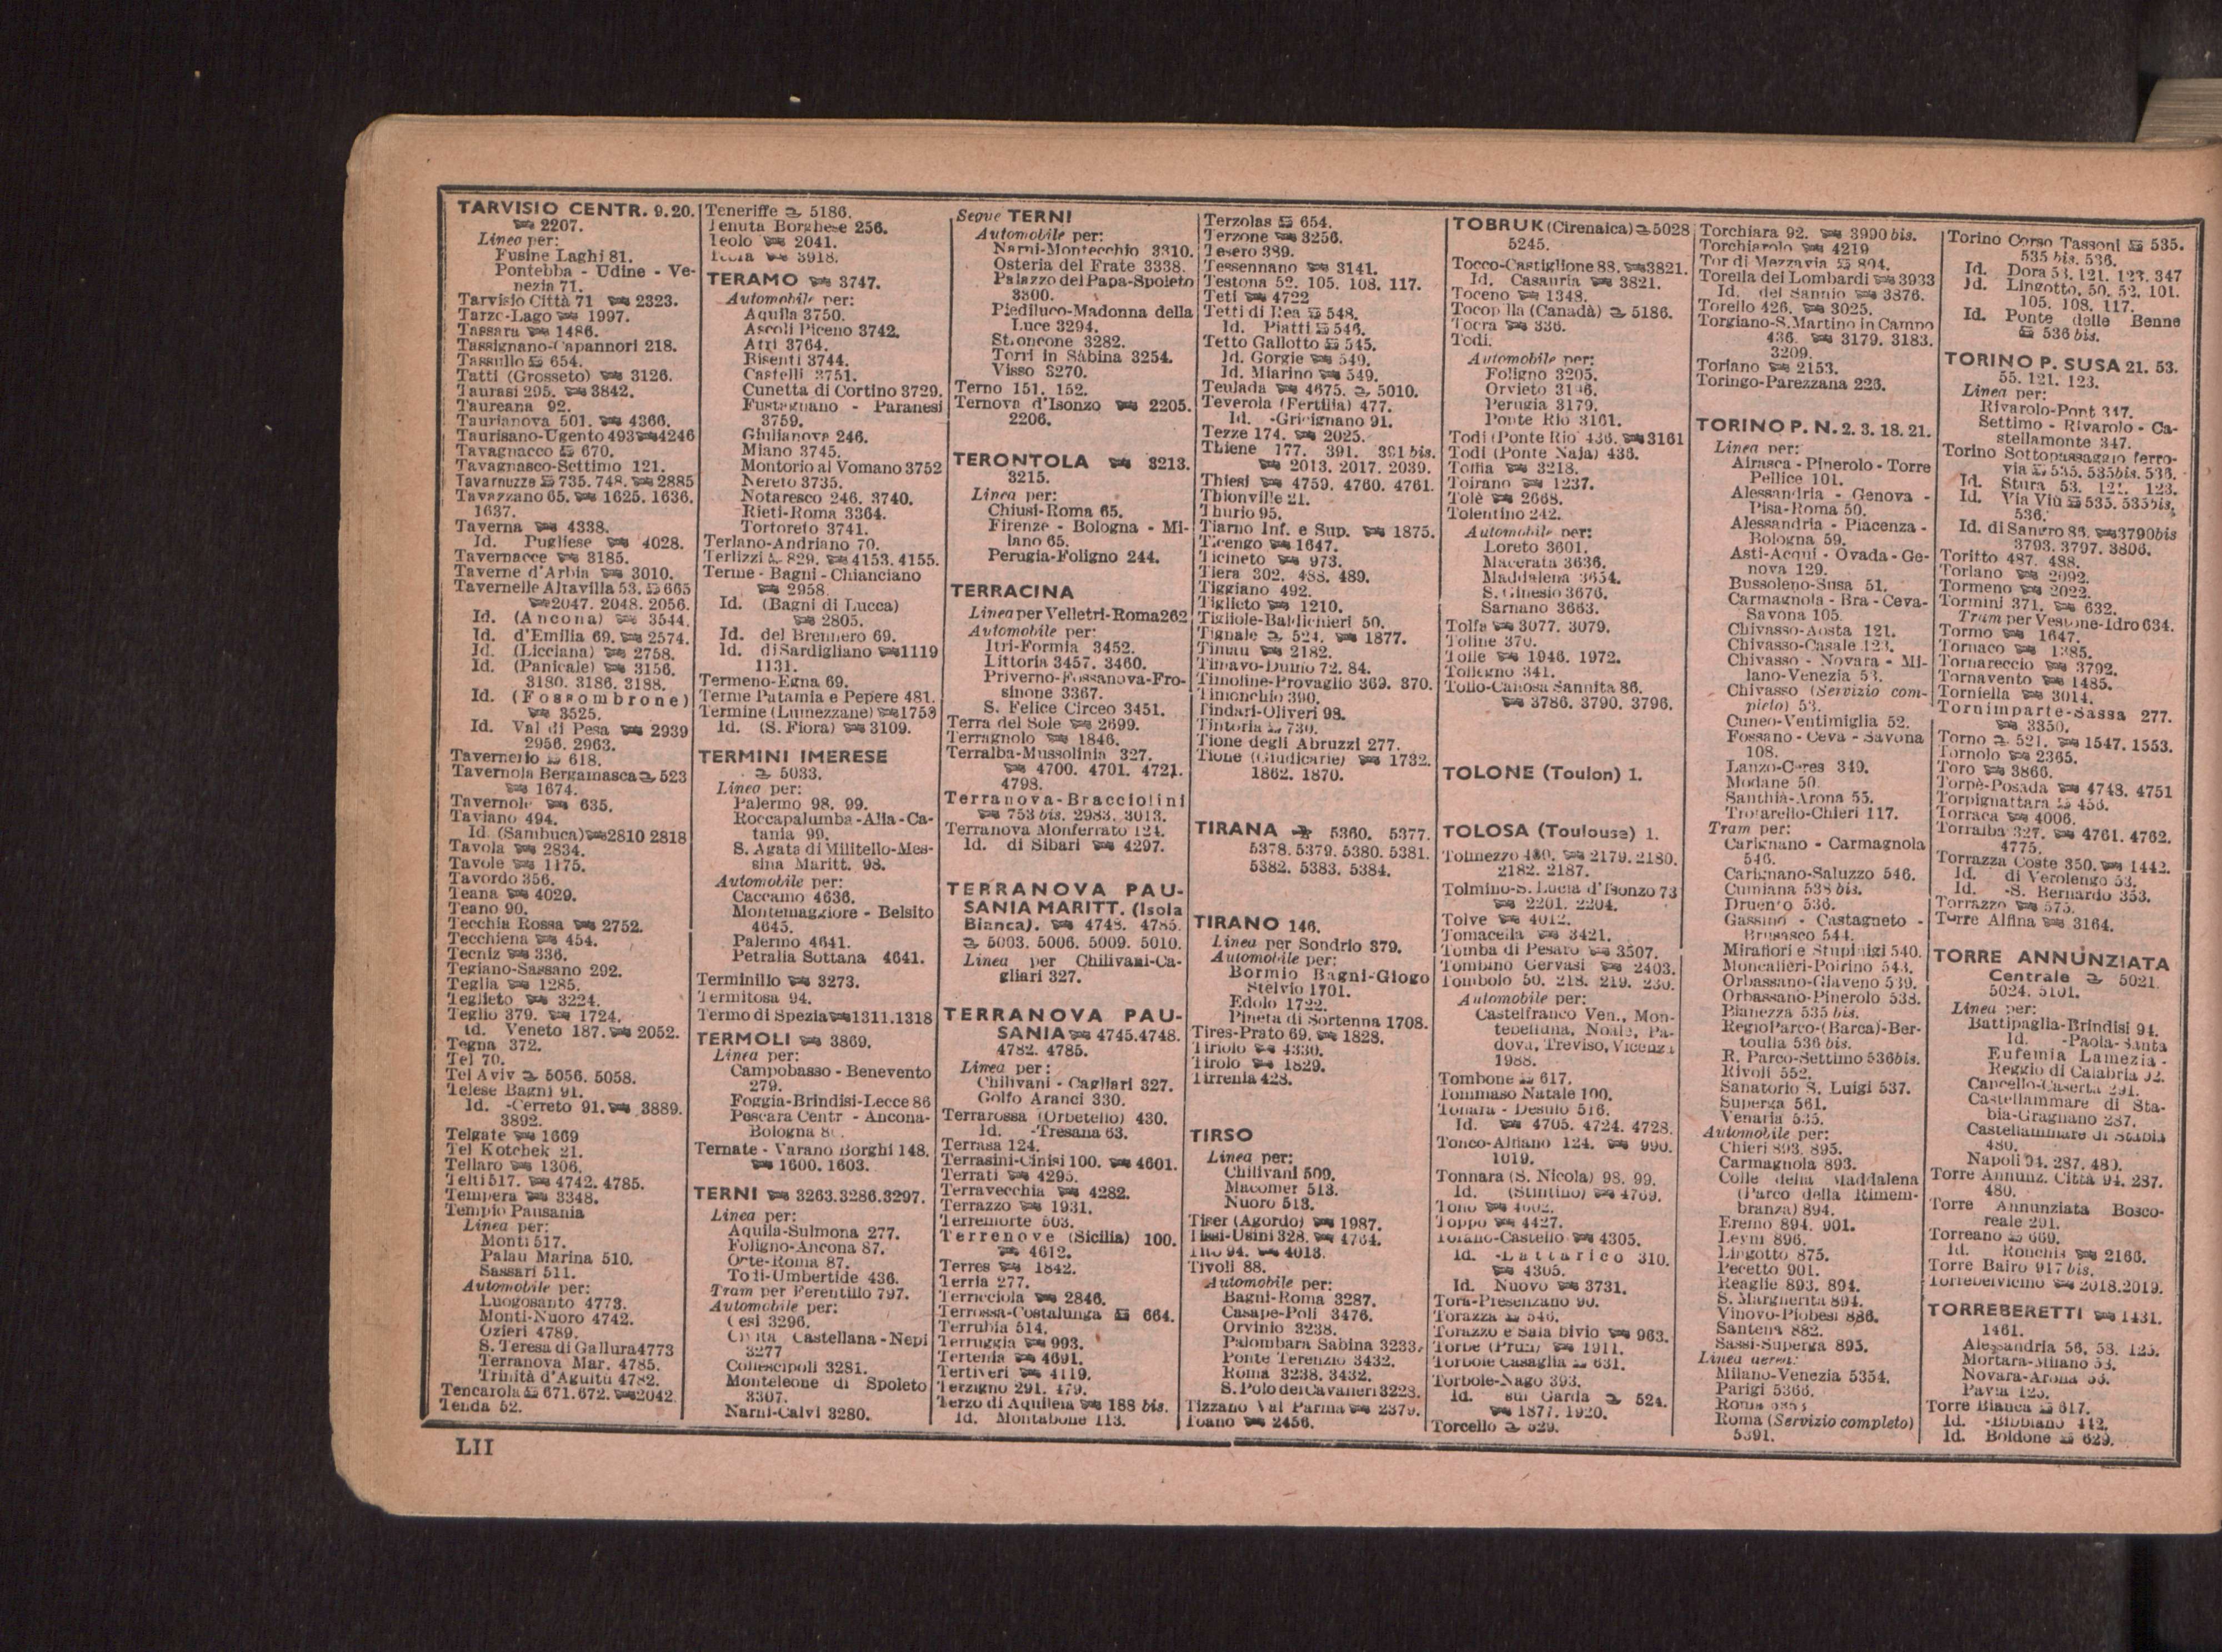 TARVISIO CENTR. 9.20.
2207.
Linea per:
Fusine Laghi 81.
Pontebba - Udine - Ve-
nezia 71.
Tarvisio Città 71 2323.
Tarzo-Lago 1997.
Tassara 1486.
Tassignano-Capannori 218.
Tassullo 654.
Tatti (Grosseto) 3126.
Taurasi 295. 3842.
Taureana 92.
Taurianova 501. 4366.
Taurisano-Ugento 493 4246
Tavagnacco 670.
Tavagnasco-Settimo 121.
Tavarnuzze 735. 748. 2885
Tavazzano 65. 1625. 1636.
1637.
Taverna 4338.
Id. Pugliese 4028.
Tavernacce 3185.
Taverne d'Arbia 3010.
Tavernelle Altavilla 53. 665
2047. 2048. 2056.
Id. (Ancona) 3544.
Id. d'Emilia 69. 2574.
Id. (Licciana) 2758.
Id. (Panicale) 3156.
3180. 3186. 3188.
Id. (Fossombrone)
3525.
Id. Val di Pesa 2939
2956. 2963.
Tavernerio 618.
Tavernola Bergamasca 523
1674.
Tavernole 635.
Taviano 494.
Id. (Sambuca) 2810 2818
Tavola 2834.
Tavole 1175.
Tavordo 356.
Teana 4029.
Teano 90.
Tecchia Rossa 2752.
Tecchiena 454.
Tecniz 336.
Tegiano-Sassano 292.
Teglia 1285.
Teglieto 3224.
Teglio 379. 1724.
Id. Veneto 187. 2052.
Tegna 372.
Tel 70.
Tel Aviv 5056. 5058.
Telese Bagni 91.
Id. -Cerreto 91. 3889.
3892.
Telgate 1669
Tel Kotchek 21.
Tellaro 1306.
Telti 517. 4742. 4785.
Tempera 3348.
Tempio Pausania
Linea per:
Monti 517.
Palau Marina 510.
Sassari 511.
Automobile per:
Luogosanto 4773.
Monti-Nuoro 4742.
Ozieri 4789.
S. Teresa di Gallura 4773
Terranova Mar. 4785.
Trinità d'Agultu 4782.
Tencarola 671. 672. 2042.
Tenda 52.
LII
Teneriffe 5186.
Tenuta Borghese 256.
Teolo 2041.
3918.
TERAMO 3747.
Automobile per:
Aquila 3750.
Ascoli Piceno 3742.
Atri 3764.
Bisenti 3744.
Castelli 3751.
Cunetta di Cortino 3729.
Fustagnano - Paranesi
3759.
Giulianova 246.
Miano 3745.
Montorio al Vomano 3752
Nereto 3735.
Notaresco 246. 3740.
Rieti-Roma 3364.
Tortoreto 3741.
Terlano-Andriano 70.
Terlizzi 829. 4153. 4155.
Terme - Bagni - Chianciano
2958.
Id. (Bagni di Lucca)
2805.
Id. del Brennero 69.
Id. di Sardigliano 1119
1131.
Termeno-Egna 69.
Terme Patamia e Pepere 481.
Termine (Lumezzane) 1753
Id. (S. Fiora) 3109.
TERMINI IMERESE
5033.
Linea per:
Palermo 98. 99.
Roccapalumba-Alia-Ca-
tania 99.
S. Agata di Militello-Mes-
sina Maritt. 98.
Automobile per:
Caccamo 4636.
Montemaggiore - Belsito
4645.
Palermo 4641.
Petralia Sottana 4641.
Terminillo 3273.
Termitosa 94.
Termo di Spezia 1311.1318
TERMOLI 3869.
Linea per:
Campobasso - Benevento
279.
Foggia-Brindisi-Lecce 86
Pescara Centr - Ancona-
Bologna
Ternate - Varano Borghi 148.
1600. 1603.
TERNI 3263.3286.3297.
Linea per:
Aquila-Sulmona 277.
Foligno-Ancona 87.
Orte-Roma 87.
Todi-Umbertide 436.
Tram per Ferentillo 797.
Automobile per:
Cesi 3296.
Civita Castellana-Nepi
3277
Collescipoli 3281.
Monteleone di Spoleto
3307.
Narni-Calvi 3280.
Segue TERNI
Automobile per:
Narni-Montecchio 3310.
Osteria del Frate 3338.
Palazzo del Papa-Spoleto
3300.
Piediluco-Madonna della
Luce 3294.
Stroncone 3282.
Torri in Sabina 3254.
Visso 3270.
Terno 151. 152.
Ternova d'Isonzo 2205.
2206.
TERONTOLA 3213.
3215.
Linea per:
Chiusi-Roma 65.
Firenze - Bologna - Mi-
lano 65.
Perugia-Foligno 244.
TERRACINA
Linea per Velletri-Roma 262
Automobile per:
Itri-Formia 3452.
Littoria 3457. 3460.
Priverno-Fossanova-Fro-
sinone 3367.
S. Felice Circeo 3451.
Terra del Sole 2699.
Terragnolo 1846.
Terralba-Mussolinia 327.
4700. 4701. 4721.
4798.
Terranova-Bracciolini
753 bis. 2983. 3013.
Terranova Monferrato 124.
Id. di Sibari 4297.
TERRANOVA PAU-
SANIA MARITT. (Isola
Bianca). 4748. 4785.
5003. 5006. 5009. 5010.
Linea per Chilivani-Ca-
gliari 327.
TERRANOVA PAU-
SANIA 4745.4748.
4782. 4785.
Linea per:
Chilivani - Cagliari 327.
Golfo Aranci 330.
Terrarossa (Orbetello) 430.
Id. -Tresana 63.
Terrasa 124.
Terrasini-Cinisi 100. 4601.
Terrati 4295.
Terravecchia 4282.
Terrazzo 1931.
Terremorte 503.
Terrenove (Sicilia) 100.
4612.
Terres 1842.
Terria 277.
Terricciola 2846.
Terrossa-Costalunga 664.
Terrubia 514.
Terruggia 993.
Tertenia 4691.
Tertiveri 4119.
Terzigno 291. 479.
Terzo di Aquileia 188 bis.
Id. Montabone 113.
Terzolas 654.
Terzone 3256.
Tesero 389.
Tessennano 3141.
Testona 52. 105. 108. 117.
Teti 4722
Tetti di Rea 548.
Id. Piatti 546.
Tetto Gallotto 545.
Id. Gorgie 549.
Id. Miarino 549.
Teulada 4675. 5010.
Teverola (Fertilia) 477.
Id. -Gricignano 91.
Tezze 174. 2025.
Thiene 177. 391. 391 bis.
2013. 2017. 2039.
Thiesi 4759. 4760. 4761.
Thionville 21.
Thurio 95.
Tiarno Inf. e Sup. 1875.
Ticengo 1647.
Ticineto 973.
Tiera 302. 488. 489.
Tiggiano 492.
Tiglieto 1210.
Tigliole-Baldichieri 50.
Tignale 524. 1877.
Timau 2182.
Timavo-Duino 72. 84.
Timoline-Provaglio 369. 370.
Timonchio 390.
Tindari-Oliveri 98.
Tintoria 730.
Tione degli Abruzzi 277.
Tione (Giudicarie) 1732.
1862. 1870.
TIRANA 5360. 5377.
5378. 5379. 5380. 5381.
5382. 5383. 5384.
TIRANO 146.
Linea per Sondrio 379.
Automobile per:
Bormio Bagni-Giogo
Stelvio 1701.
Edolo 1722.
Pineta di Sortenna 1708.
Tires-Prato 69. 1828.
Tiriolo 4330.
Tirolo 1829.
Tirrenia 428.
TIRSO
Linea per:
Chilivani 509.
Macomer 513.
Nuoro 513.
Tiser (Agordo) 1987.
Tissi-Usini 328. 4764.
Tito 94. 4013.
Tivoli 88.
Automobile per:
Bagni-Roma 3287.
Casape-Poli 3476.
Orvinio 3238.
Palombara Sabina 3233.
Ponte Terenzio 3432.
Roma 3238. 3432.
S. Polo dei Cavalieri 3228.
Tizzano Val Parma 2379.
Toano 2456.
TOBRUK (Cirenaica) 5028
5245.
Tocco-Castiglione 88. 3821.
Id. Casauria 3821.
Toceno 1348.
Tocopilla (Canadà) 5186.
Tocra 336.
Todi.
Automobile per:
Foligno 3205.
Orvieto
Perugia 3179.
Ponte Rio 3161.
Todi (Ponte Rio) 436. 3161
Todi (Ponte Naja) 436.
Toffia 3218.
Toirano 1237.
Tolè 2668.
Tolentino 242.
Automobile per:
Loreto 3601.
Macerata 3636.
Maddalena 3654.
S. Ginesio 3676.
Sarnano 3663.
Tolfa 3077. 3079.
Toline 370.
Tolle 1946. 1972.
Tollegno 341.
Tollo-Canosa Sannita 86.
3786. 3790. 3796.
TOLONE (Toulon) 1.
TOLOSA (Toulouse) 1.
Tolmezzo 2179. 2180.
2182. 2187.
Tolmino-S. Lucia d'Isonzo 73
2201. 2204.
Tolve 4012.
Tomacella 3421.
Tomba di Pesaro 3507.
Tombino Gervasi 2403.
Tombolo 50. 218. 219. 230.
Automobile per:
Castelfranco Ven., Mon-
tebelluna, Noale, Pa-
dova, Treviso, Vicenza
1988.
Tombone 617.
Tommaso Natale 100.
Tonara - Desulo 516.
Id. 4705. 4724. 4728.
Tonco-Alfiano 124. 990.
1019.
Tonnara (S. Nicola) 98. 99.
Id. (Stintino) 4769.
Tono 4602.
Toppo 4427.
Torano-Castello 4305.
Id. -Lattarico 310.
4305.
Id. Nuovo 3731.
Tora-Presenzano 90.
Torazza 546.
Torazzo e Sala bivio 963.
Torbe (Prun) 1911.
Torbole Casaglia 631.
Torbole-Nago 393.
Id. sul Garda 524.
1877. 1920.
Torcello 529.
Torchiara 92. 3990 bis.
Torchiarolo 4219
Tor di Mezzavia 804.
Torella dei Lombardi 3933
Id. del Sannio 3876.
Torello 426. 3025.
Torgiano-S.Martino in Campo
436. 3179. 3183.
3209.
Toriano 2153.
Toringo-Parezzana 223.
TORINO P. N. 2. 3. 18. 21.
Linea per:
Airasca - Pinerolo - Torre
Pellice 101.
Alessandria - Genova -
Pisa-Roma 50.
Alessandria - Piacenza -
Bologna 59.
Asti-Acqui - Ovada - Ge-
nova 129.
Bussoleno-Susa 51.
Carmagnola - Bra - Ceva-
Savona 105.
Chivasso-Aosta 121.
Chivasso-Casale 123.
Chivasso - Novara - Mi-
lano-Venezia 53.
Chivasso (Servizio com-
pleto) 53.
Cuneo-Ventimiglia 52.
Fossano - Ceva - Savona
108.
Lanzo-Ceres 349.
Modane 50.
Santhià-Arona 55.
Trofarello-Chieri 117.
Tram per:
Carignano - Carmagnola
546.
Carignano-Saluzzo 546.
Cumiana 538 bis.
Druento 536.
Gassino - Castagneto -
Brusasco 544.
Mirafiori e Stupinigi 540.
Moncalieri-Poirino 543.
Orbassano-Giaveno 539.
Orbassano-Pinerolo 538.
Pianezza 535 bis.
Regio Parco-(Barca)-Ber-
toulla 536 bis.
R. Parco-Settimo 536bis.
Rivoli 552.
Sanatorio S. Luigi 537.
Superga 561.
Venaria 535.
Automobile per:
Chieri 893. 895.
Carmagnola 893.
Colle della Maddalena
(Parco della Rimem-
branza) 894.
Eremo 894. 901.
Leyni 896.
Lingotto 875.
Pecetto 901.
Reaglie 893. 894.
S. Margherita 894.
Vinovo-Piobesi 886.
Santena 882.
Sassi-Superga 895.
Linea aerea:
Milano-Venezia 5354.
Parigi 5366.
Roma 5353
Roma (Servizio completo)
5391.
Torino Corso Tassoni 535.
535 bis. 536.
Id. Dora 53. 121. 123. 347
Id. Lingotto. 50. 52. 101.
105. 108. 117.
Id. Ponte delle Benne
536 bis.
TORINO P. SUSA 21. 53.
55. 121. 123.
Linea per:
Rivarolo-Pont 347.
Settimo - Rivarolo - Ca-
stellamonte 347.
Torino Sottopassaggio ferro-
via 535. 535bis. 536.
Id. Stura 53. 121. 123.
Id. Via Viù 535. 535bis.
536.
Id. di Sangro 86. 3790bis
3793. 3797. 3806.
Toritto 487. 488.
Torlano 2092.
Tormeno 2022.
Tormini 371. 632.
Tram per Vestone-Idro 634.
Tormo 1647.
Tornaco 1385.
Tornareccio 3792.
Tornavento 1485.
Torniella 3014.
Tornimparte-Sassa 277.
3350.
Torno 521. 1547. 1553.
Tornolo 2365.
Toro 3866.
Torpè-Posada 4748. 4751
Torpignattara 456.
Torraca 4006.
Torralba 327. 4761. 4762.
4775.
Torrazza Coste 350. 1442.
Id. di Verolengo 53.
Id. -S. Bernardo 353.
Torrazzo 575.
Torre Alfina 3164.
TORRE ANNUNZIATA
Centrale 5021.
5024. 5101.
Linea per:
Battipaglia-Brindisi 94.
Id. -Paola-Santa
Eufemia Lamezia -
Reggio di Calabria 92.
Cancello-Caserta 291.
Castellammare di Sta-
bia-Gragnano 287.
Castellammare di Stabia
480.
Napoli 94. 287. 480.
Torre Annunz. Città 94. 287.
480.
Torre Annunziata Bosco-
reale 291.
Torreano 669.
Id. Ronchis 2166.
Torre Bairo 917 bis.
Torrebelvicino 2018.2019.
TORREBERETTI 1431.
1461.
Alessandria 56. 58. 125.
Mortara-Milano 53.
Novara-Arona 56.
Pavia 125.
Torre Bianca 617.
Id. -Bibbiano 442.
Id. Boldone 629.